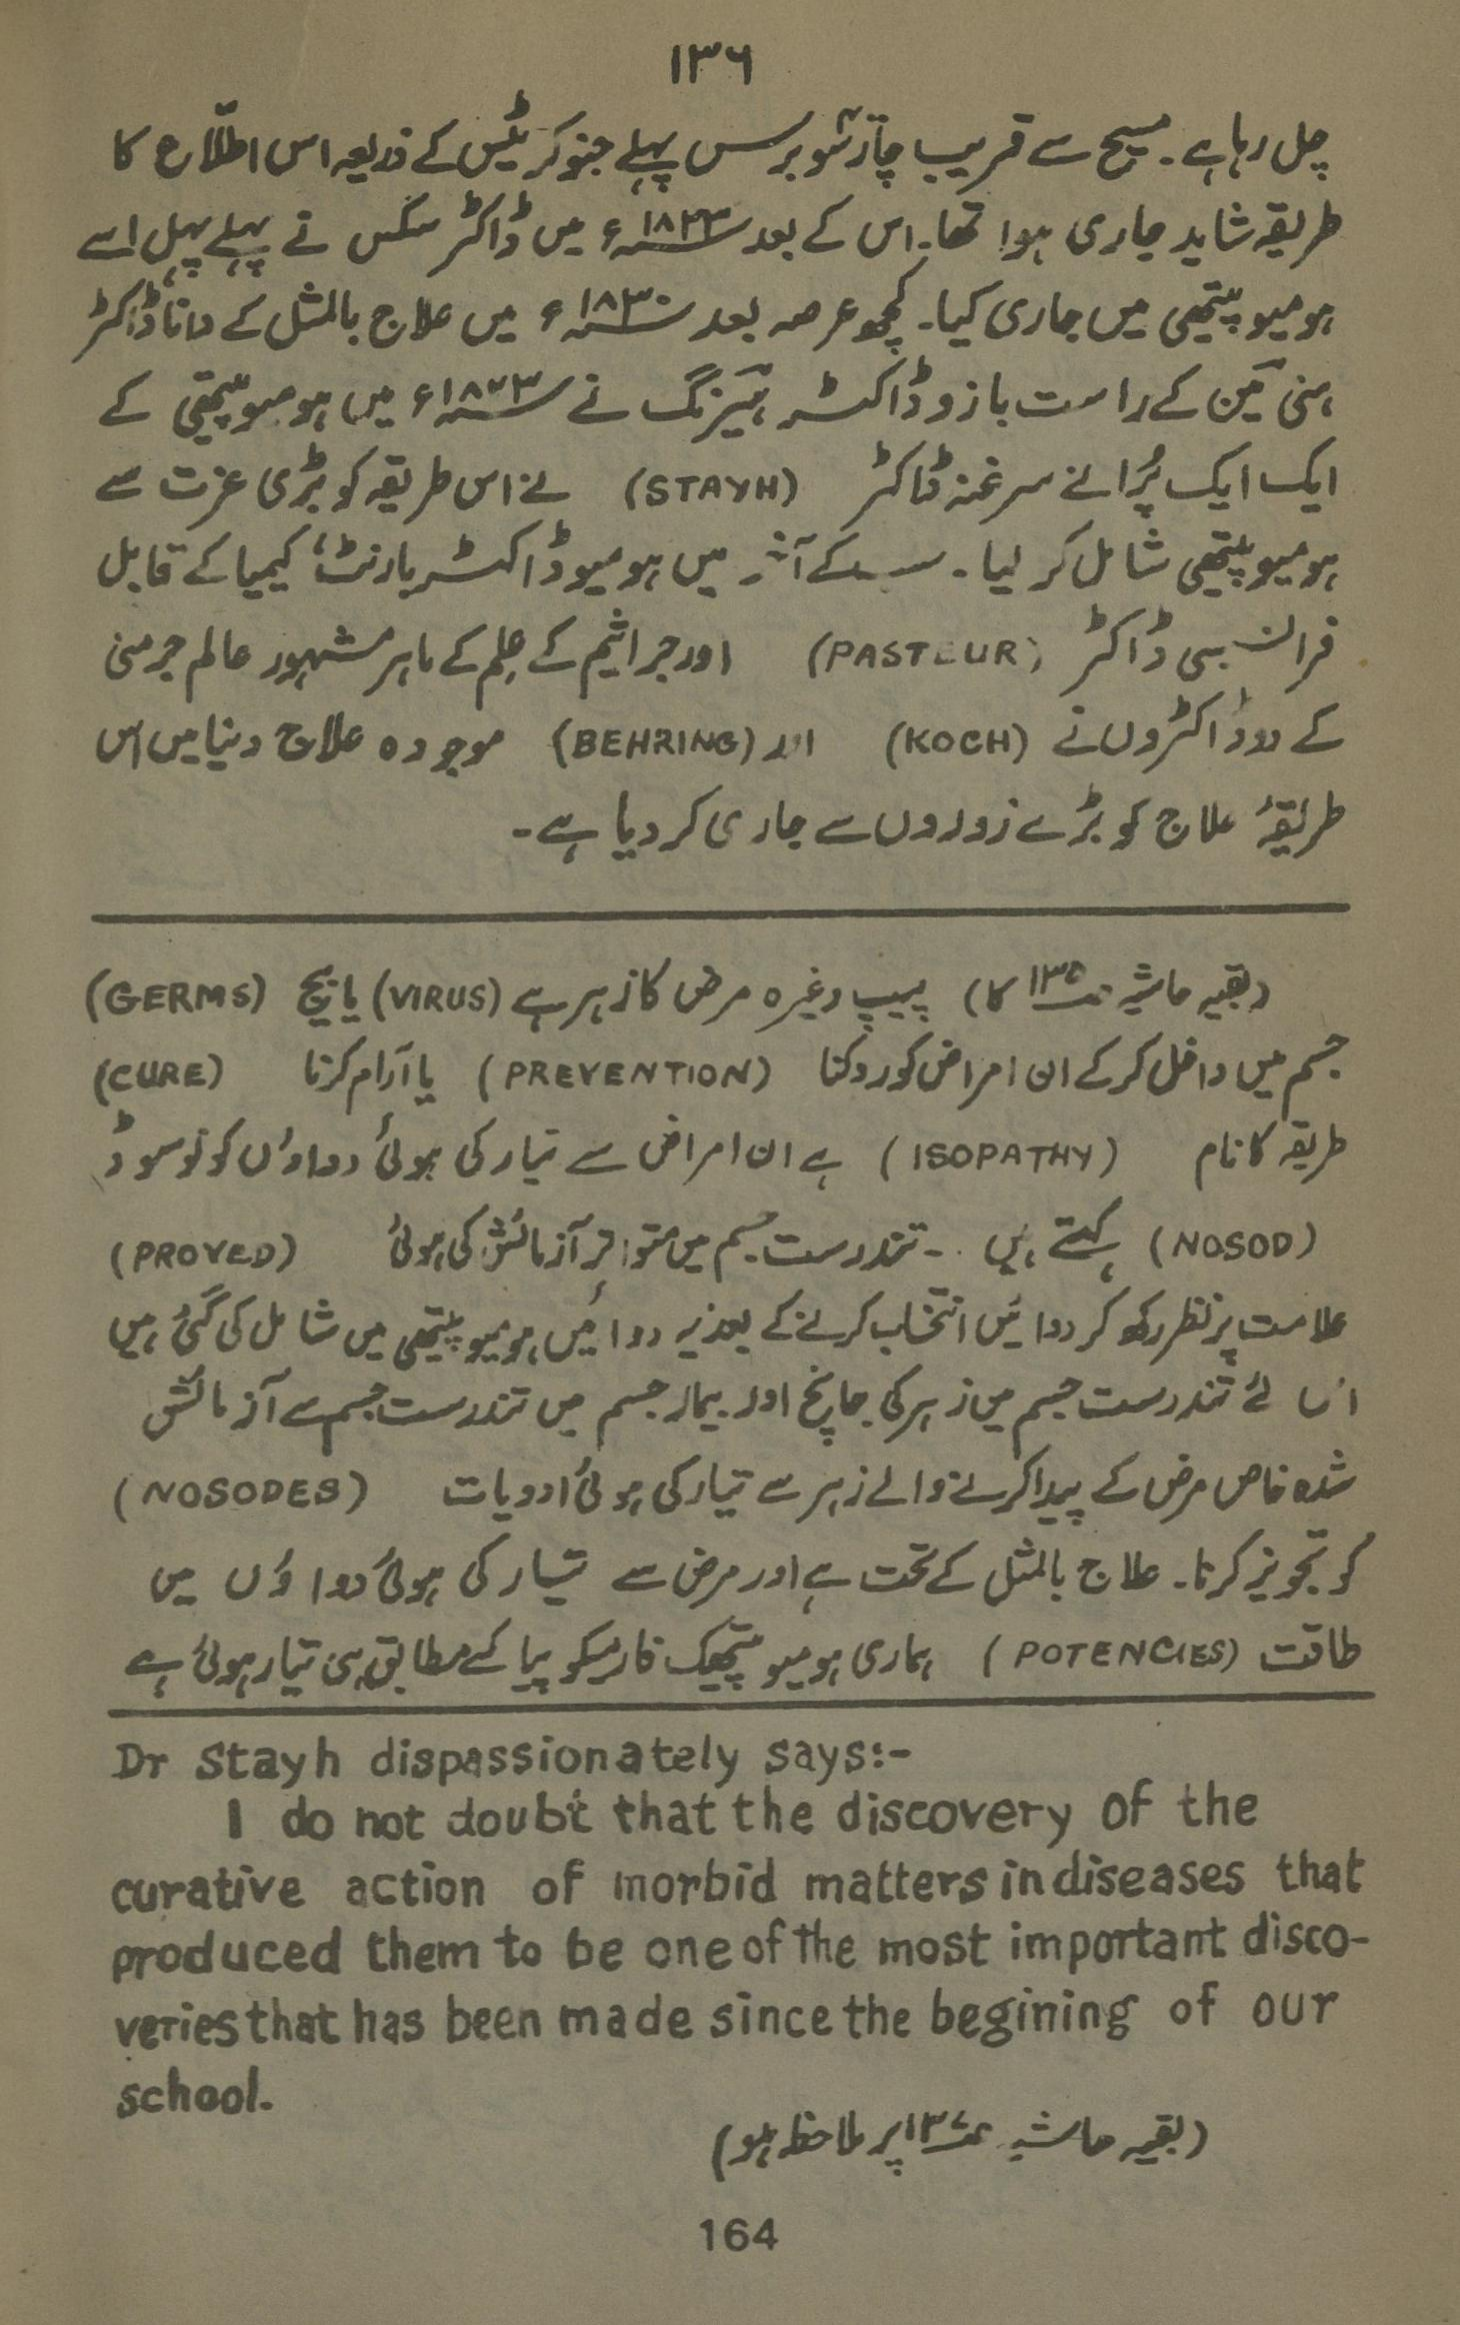 ۱۳٦
چل رہا ہے۔ مسیح سے قریب چار سو برس پہلے جنوکریٹیس کے ذریعہ اس اطلاع کا
طریقہ شاید جاری ہوا تھا۔ اس کے بعد ۱۸۲۳ء میں ڈاکٹر سکس نے پہلے پہل اسے
ہومیوپیتھی میں جاری کیا۔ کچھ عرصہ بعد ۱۸۳۰ء میں علاج بالمثل کے دانا ڈاکٹر
ہنی مین کے راست بازو ڈاکٹر ہیرنگ نے ۱۸۷۳ء میں ہومیوپیتھی کے
ایک ایک پُرانے سرغنہ ڈاکٹر (STAYH) نے اس طریقہ کو بڑی عزت سے
ہومیوپیتھی شامل کر لیا۔ کے آخر میں ہومیو ڈاکٹر بارنٹ، کیمیا کے قابل
فرانسیسی ڈاکٹر (PASTEUR) اور جراثیم کے علم کے ماہر مشہور عالم جرمنی
کے دو ڈاکٹروں نے (KOCH) اور (BEHRING) موجودہ علاج دنیا میں اس
طریقۂ علاج کو بڑے زوروں سے جاری کر دیا ہے۔
(بقیہ حاشیہ ص۱۳۵ کا) پیپ وغیرہ مرض کا زہر ہے (VIRUS) یا بیج (GERMS)
جسم میں داخل کر کے ان امراض کو روکنا (PREVENTION) یا آرام کرنا (CURE)
طریقہ کا نام (ISOPATHY) ہے ان امراض سے تیار کی ہوئی دواوٴں کو نوسوڈ
(NOSOD) کہتے ہیں ۔ تندرست جسم میں متواتر آزمائش کی ہوئی (PROVED)
علامت پر نظر رکھ کر دوائیں انتخاب کرنے کے بعد یہ دوائیں ہومیوپیتھی میں شامل کی گئی ہیں
اس لئے تندرست جسم میں زہر کی جانچ اور بیمار جسم میں تندرست جسم سے آزمائش
شدہ خاص مرض کے پیدا کرنے والے زہر سے تیار کی ہوئی ادویات (NOSODES)
کو تجویز کرنا۔ علاج بالمثل کے تحت ہے اور مرض سے تیار کی ہوئی دواوٴں میں
طاقت (POTENCIES) ہماری ہومیوپیتھیک فارمیکوپیا کے مطابق ہی تیار ہوئی ہے
Dr Stayh dispassionately says:-
I do not doubt that the discovery of the
curative action of morbid matters in diseases that
produced them to be one of the most important disco-
veries that has been made since the begining of our
school.
(بقیہ حاشیہ ص۱۳۷ پر ملاحظہ ہو)
164